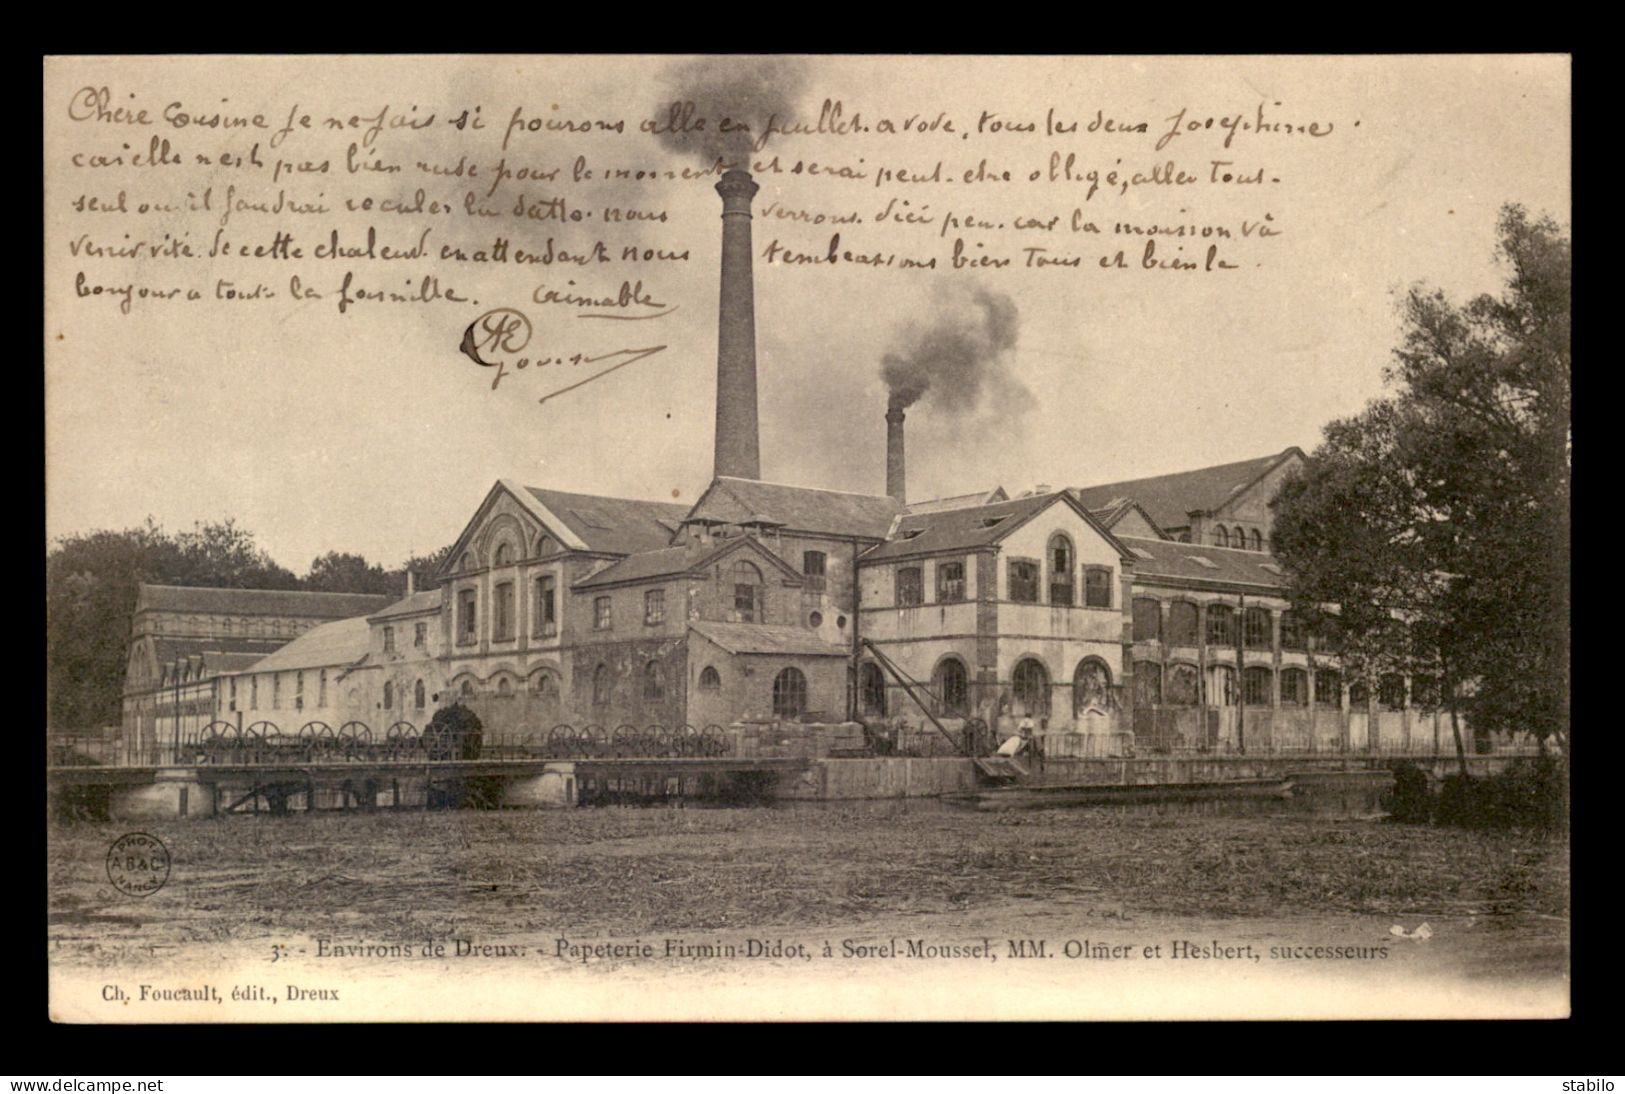 Chère Cousine Je ne sais si pourons allé en Juillet. a vove, tous les deux Josephinne
car elle n'est pas bien rude pour le moment et serai peut-etre obligé, aller tout-
seul ou il faudrai reculer la datte. nous verrons. dici peu. car la moisson và
venir vite. de cette chaleur. en attendant nous tembrassons bien Tous et bien le
bonjour a toute la famille. aimable
AE
3. - Environs de Dreux. - Papeterie Firmin-Didot, à Sorel-Moussel, MM. Olmer et Hesbert, successeurs
Ch. Foucault, édit., Dreux
PHOT.
A B & Cie
NANCY
www.delcampe.net
stabilo